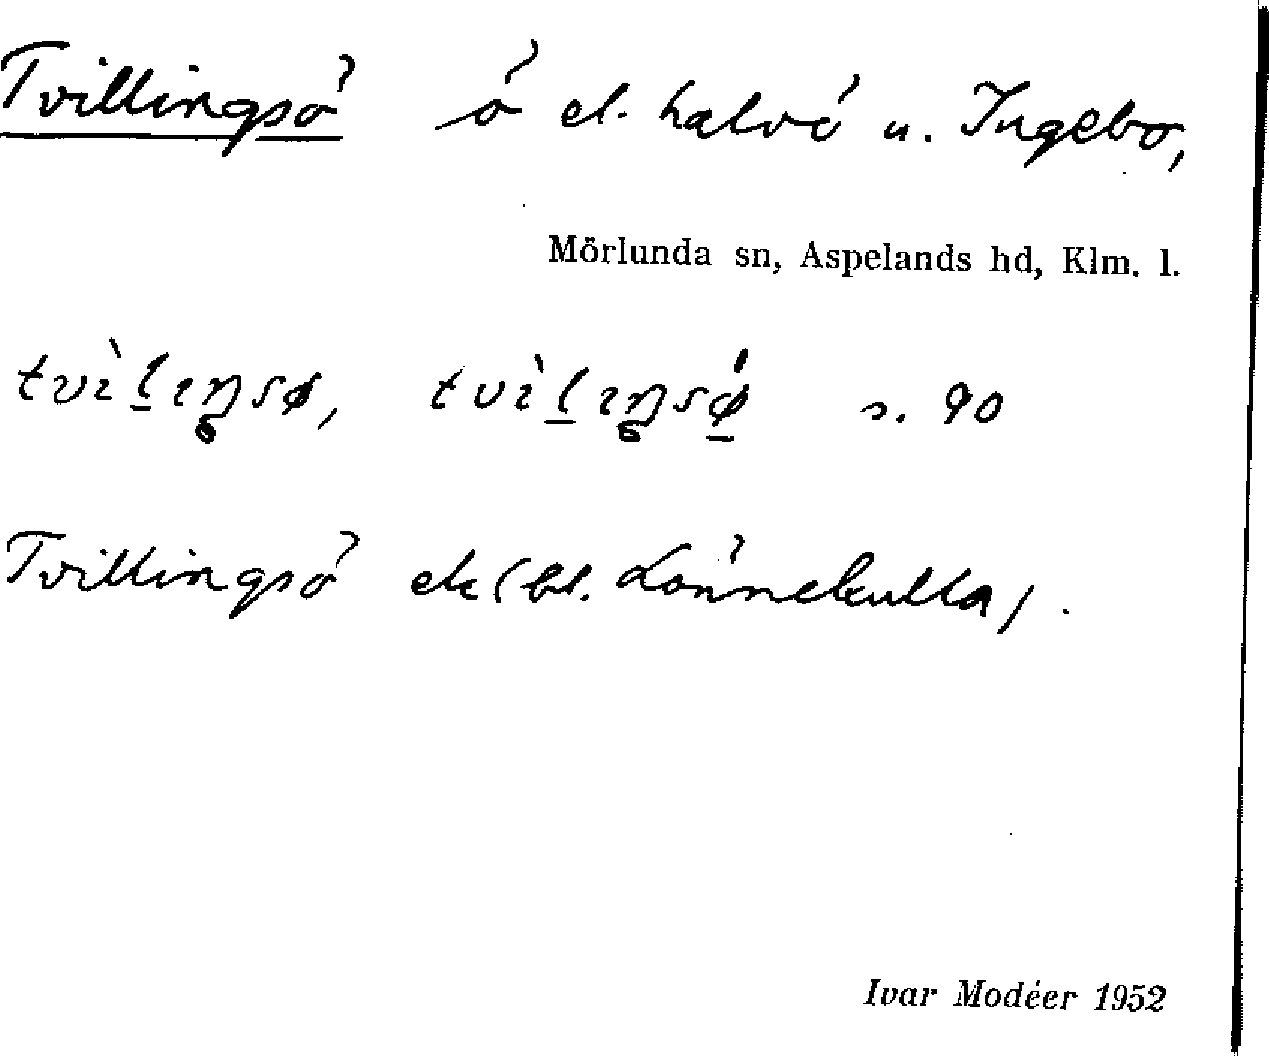 Tvillingsö ö el. halvö u. Ingebo,
Mörlunda sn, Aspelands hd, Klm. l.
tvìl̲ıŋsø, tvìl̲ıŋsǿ̲ s. 90
Tvillingsö ek (bl. Lönnekulla).
Ivar Modéer 1952